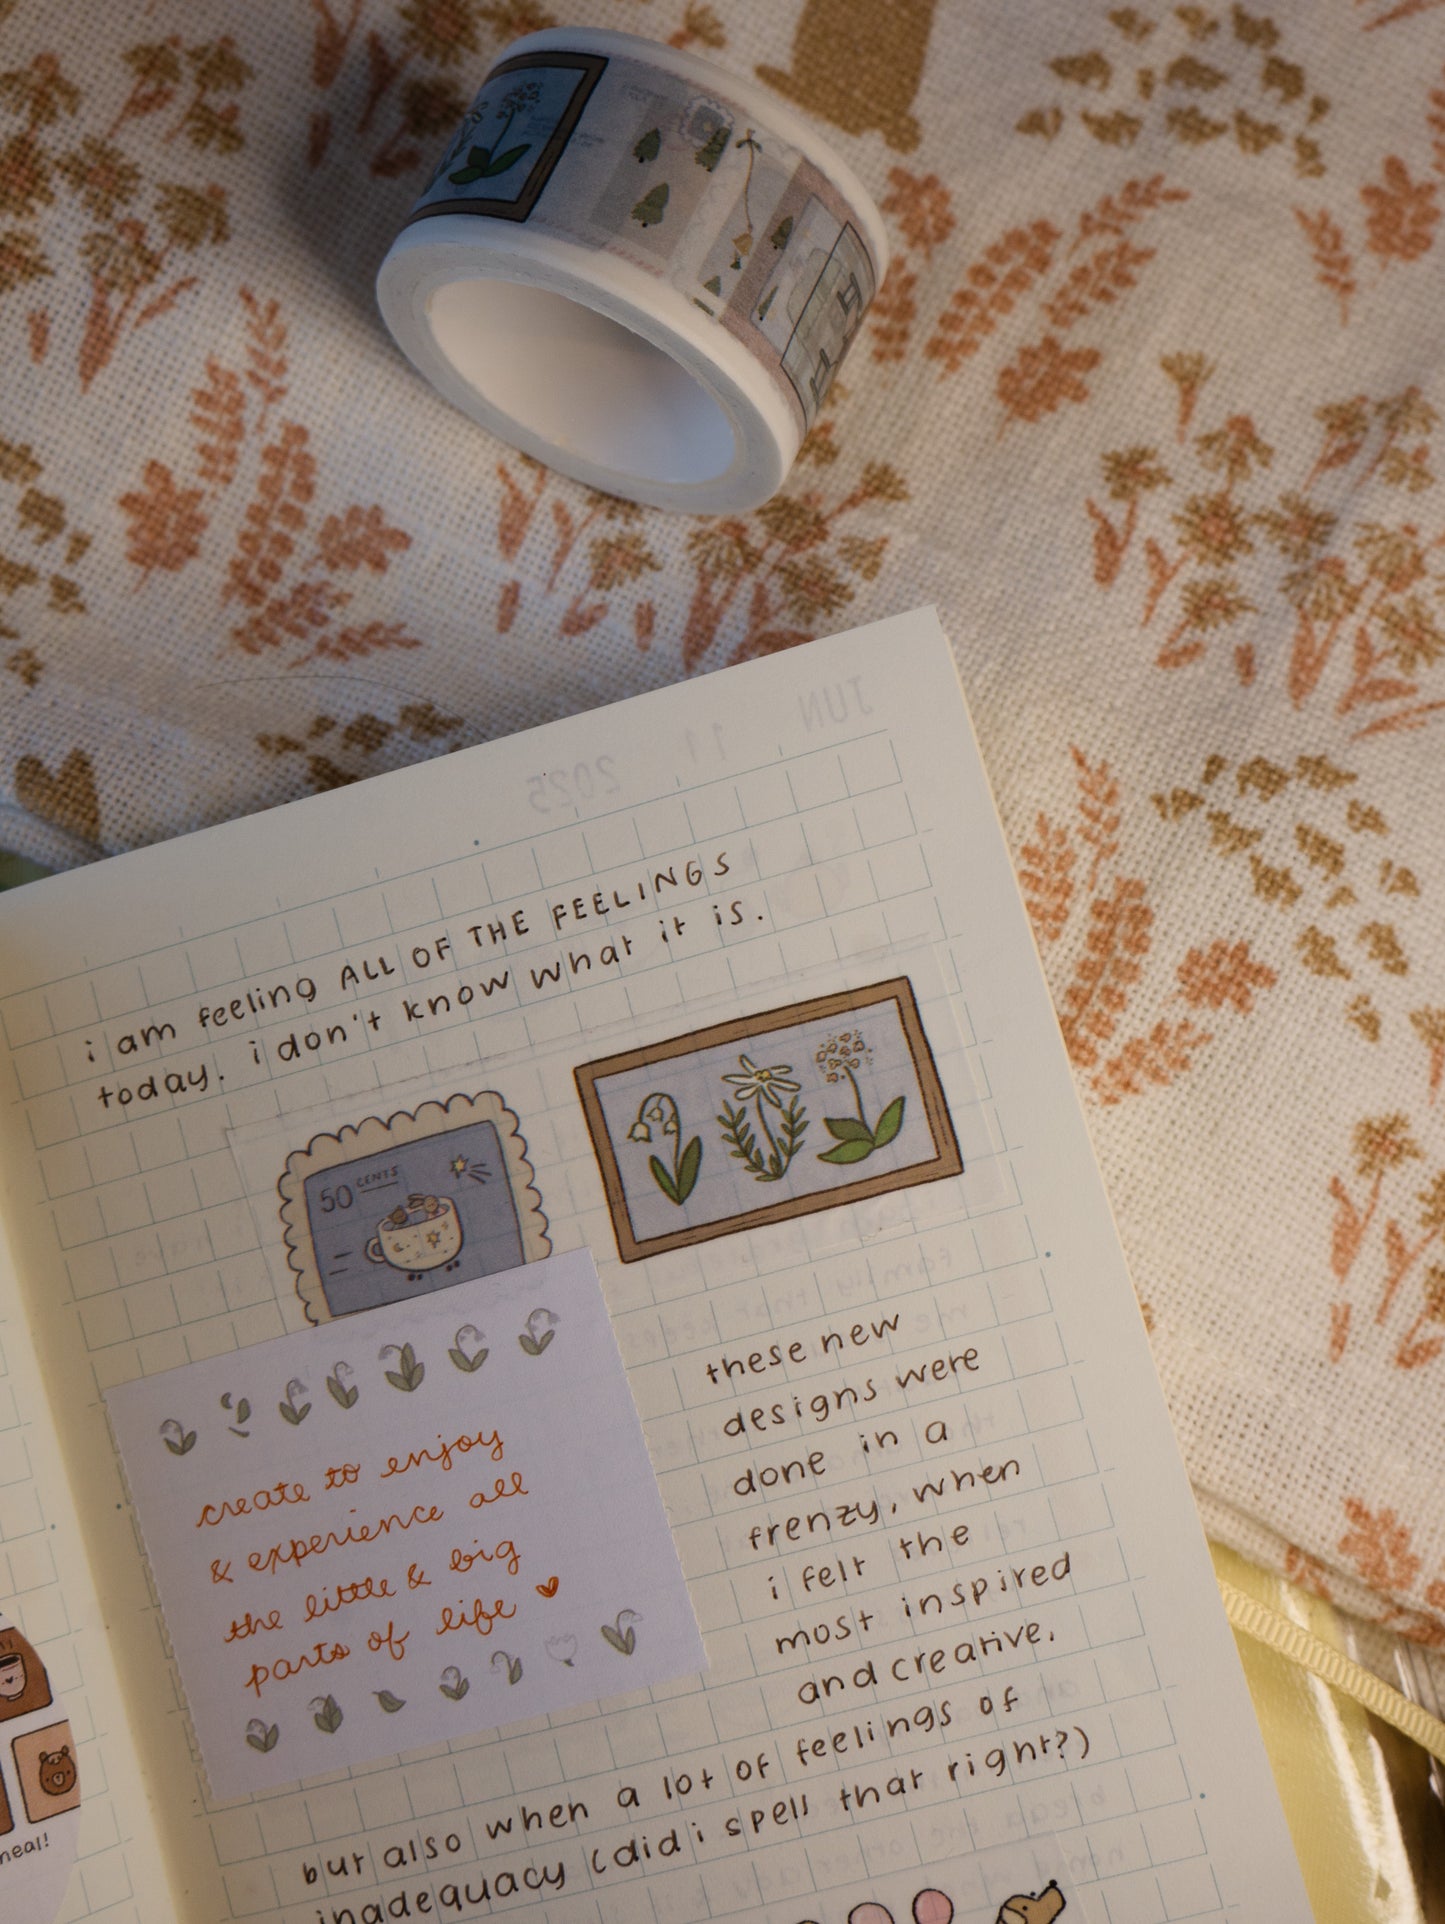 JUN 11, 2025
i am feeling ALL OF THE FEELINGS
today. i don't know what it is.
50 CENTS
create to enjoy
& experience all
the little & big
parts of life
these new
designs were
done in a
frenzy, when
i felt the
most inspired
and creative.
but also when a lot of feelings of
inadequacy (did i spell that right?)
neal!